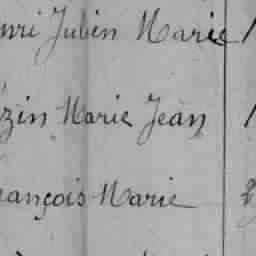 nri Julien Marie 1
zin Marie Jean 1
rançois Marie